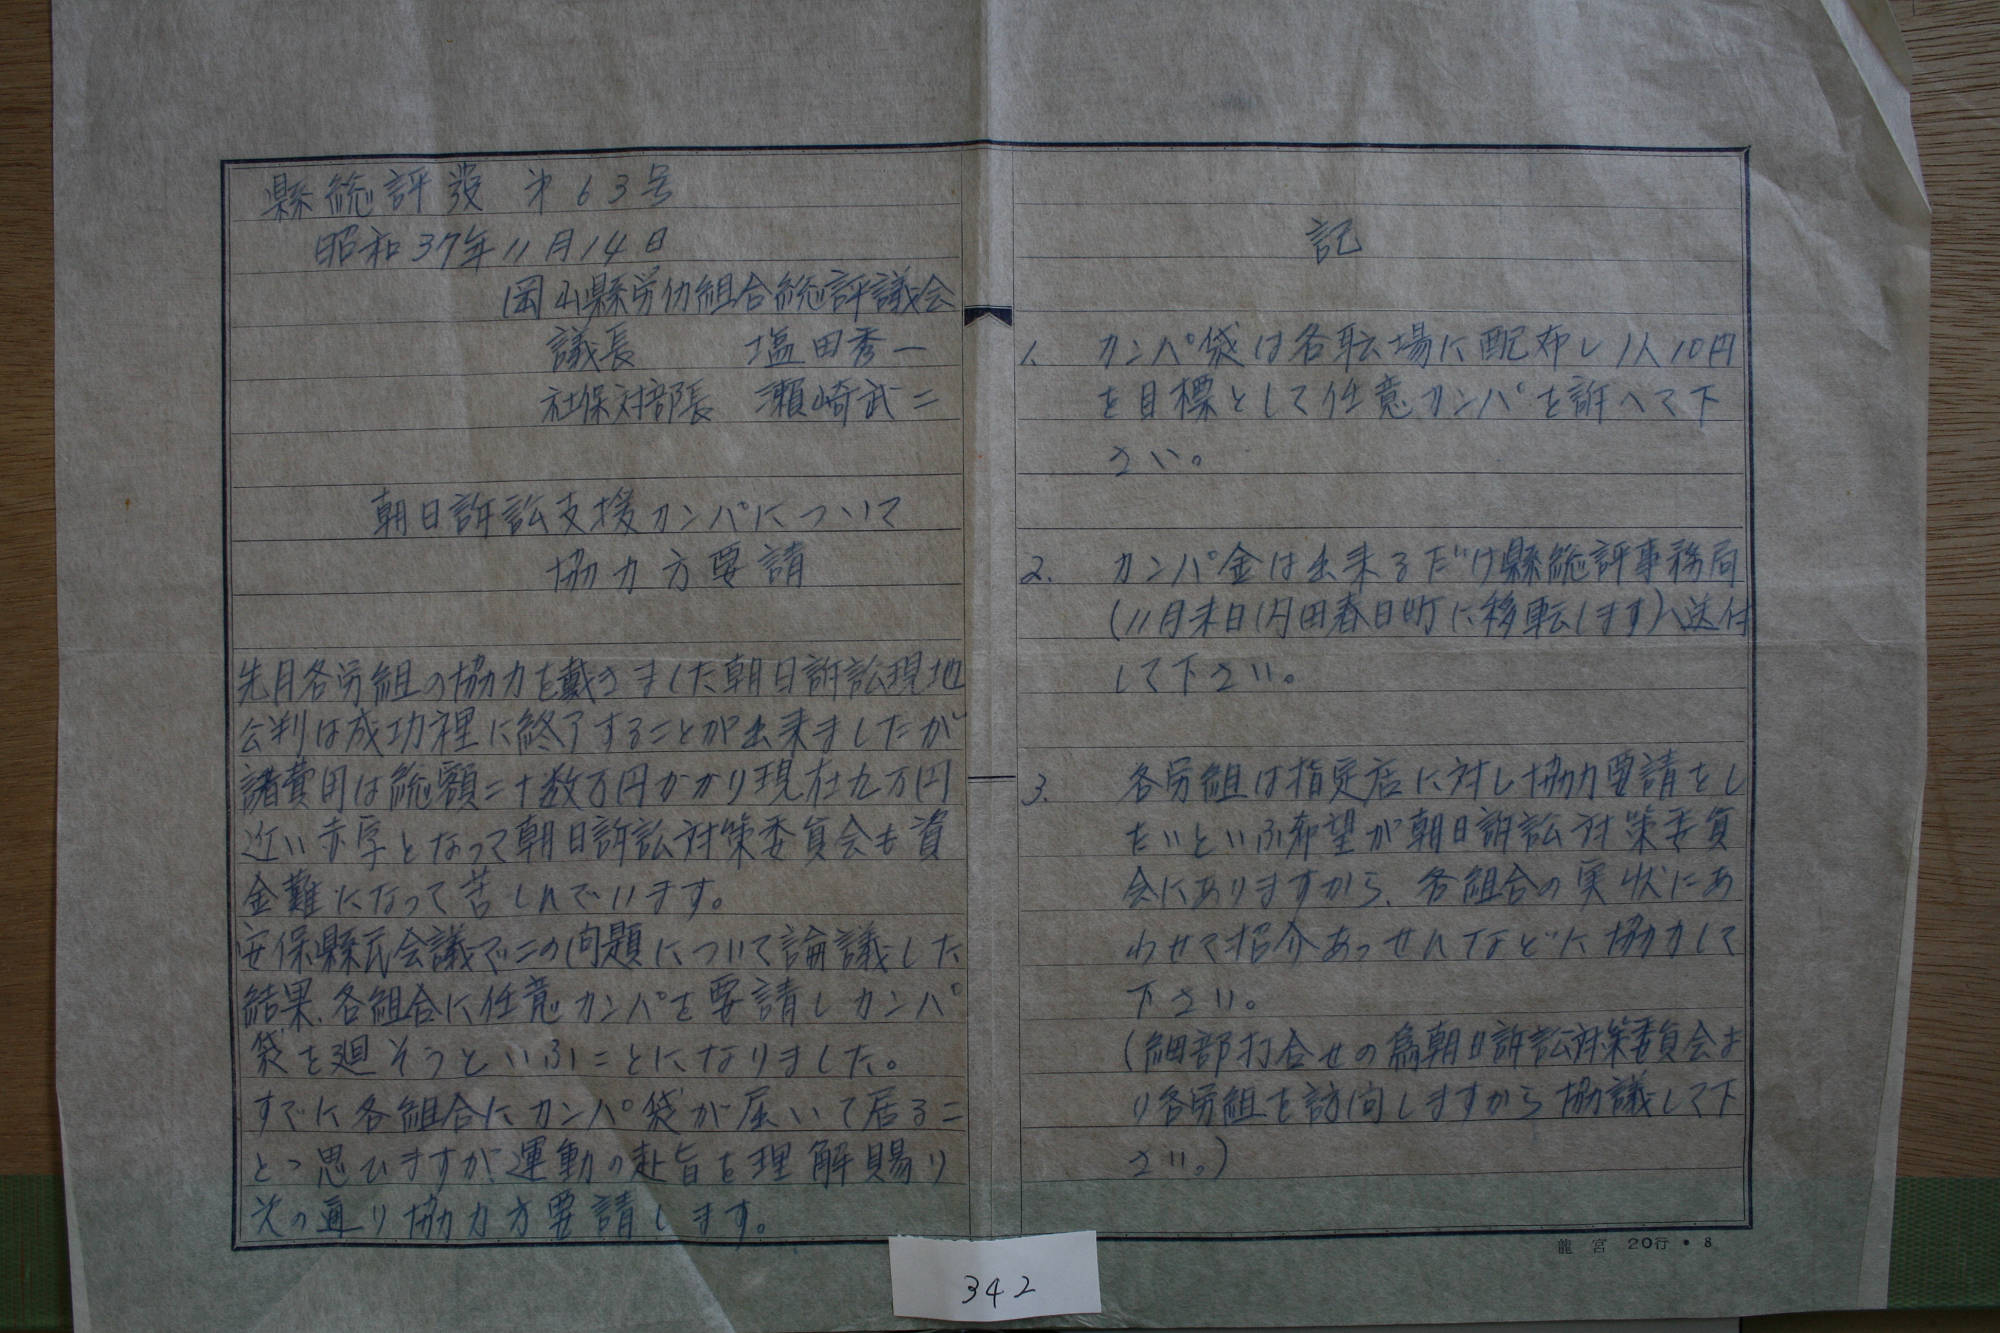 縣総評発 第63号
昭和37年11月14日
岡山縣労仂組合総評議会
議長 塩田秀一
社保対部長 瀬崎武二
朝日訴訟支援カンパについて
協力方要請
先月各労組の協力を戴きました朝日訴訟現地
公判は成功裡に終了することが出来ましたが
諸費用は総額二十数万円かかり現在九万円
近い赤字となって朝日訴訟対策委員会も資
金難になって苦しんでいます。
安保縣民会議でこの問題について論議した
結果、各組合に任意カンパを要請しカンパ
袋を廻そうといふことになりました。
すでに各組合にカンパ袋が届いて居るこ
とゝ思ひますが、運動の趣旨を理解賜り
次の通り協力方要請します。
記
1、 カンパ袋は各職場に配布し1人10円
を目標として任意カンパを訴へて下
さい。
2. カンパ金は出来るだけ縣総評事務局
(11月末日内田春日町に移転します)へ送付
して下さい。
3. 各労組は指定店に対し協力要請をし
たいといふ希望が朝日訴訟対策委員
会にありますから、各組合の実状にあ
わせて紹介あっせんなどに協力して
下さい。
(細部打合せの為朝日訴訟対策委員会よ
り各労組を訪問しますから協議して下
さい。)
龍宮 20行・8
342